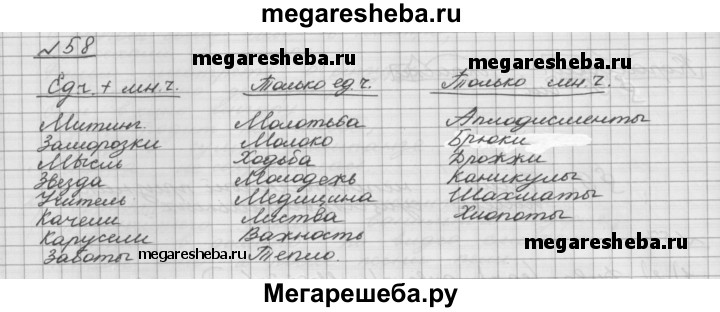 megaresheba.ru
№58
megaresheba.ru
Ед.ч. + мн.ч. Только ед.ч. Только мн.ч.
Митинг. Молотьба Аплодисменты
Заморозки Молоко Брюки
Мысль Ходьба Дрожжи
Звезда Молодежь Каникулы
Учитель Медицина Шахматы
Качели Листва Хлопоты
Карусели Важность megaresheba.ru
Заботы megaresheba.ru Тепло.
Мегарешеба.ру